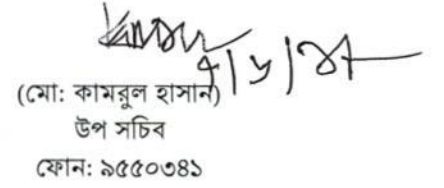 (মো: কামরুল হাসান)
উপ সচিব
ফোন: ৯৫৫০৩৪১